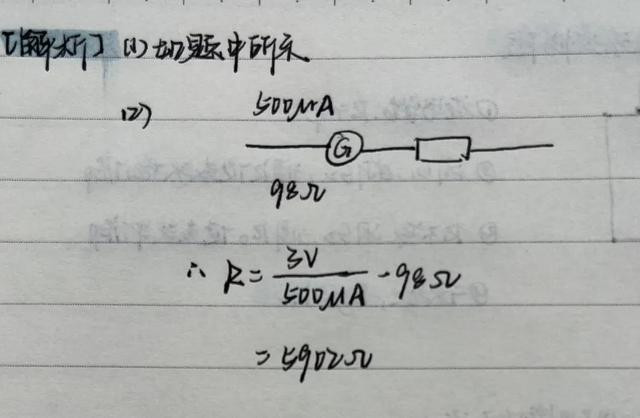 [解析] (1) 如题中所示
(2) 500μA
G
98Ω
∴ R = 3V/500μA - 98Ω
= 5902Ω